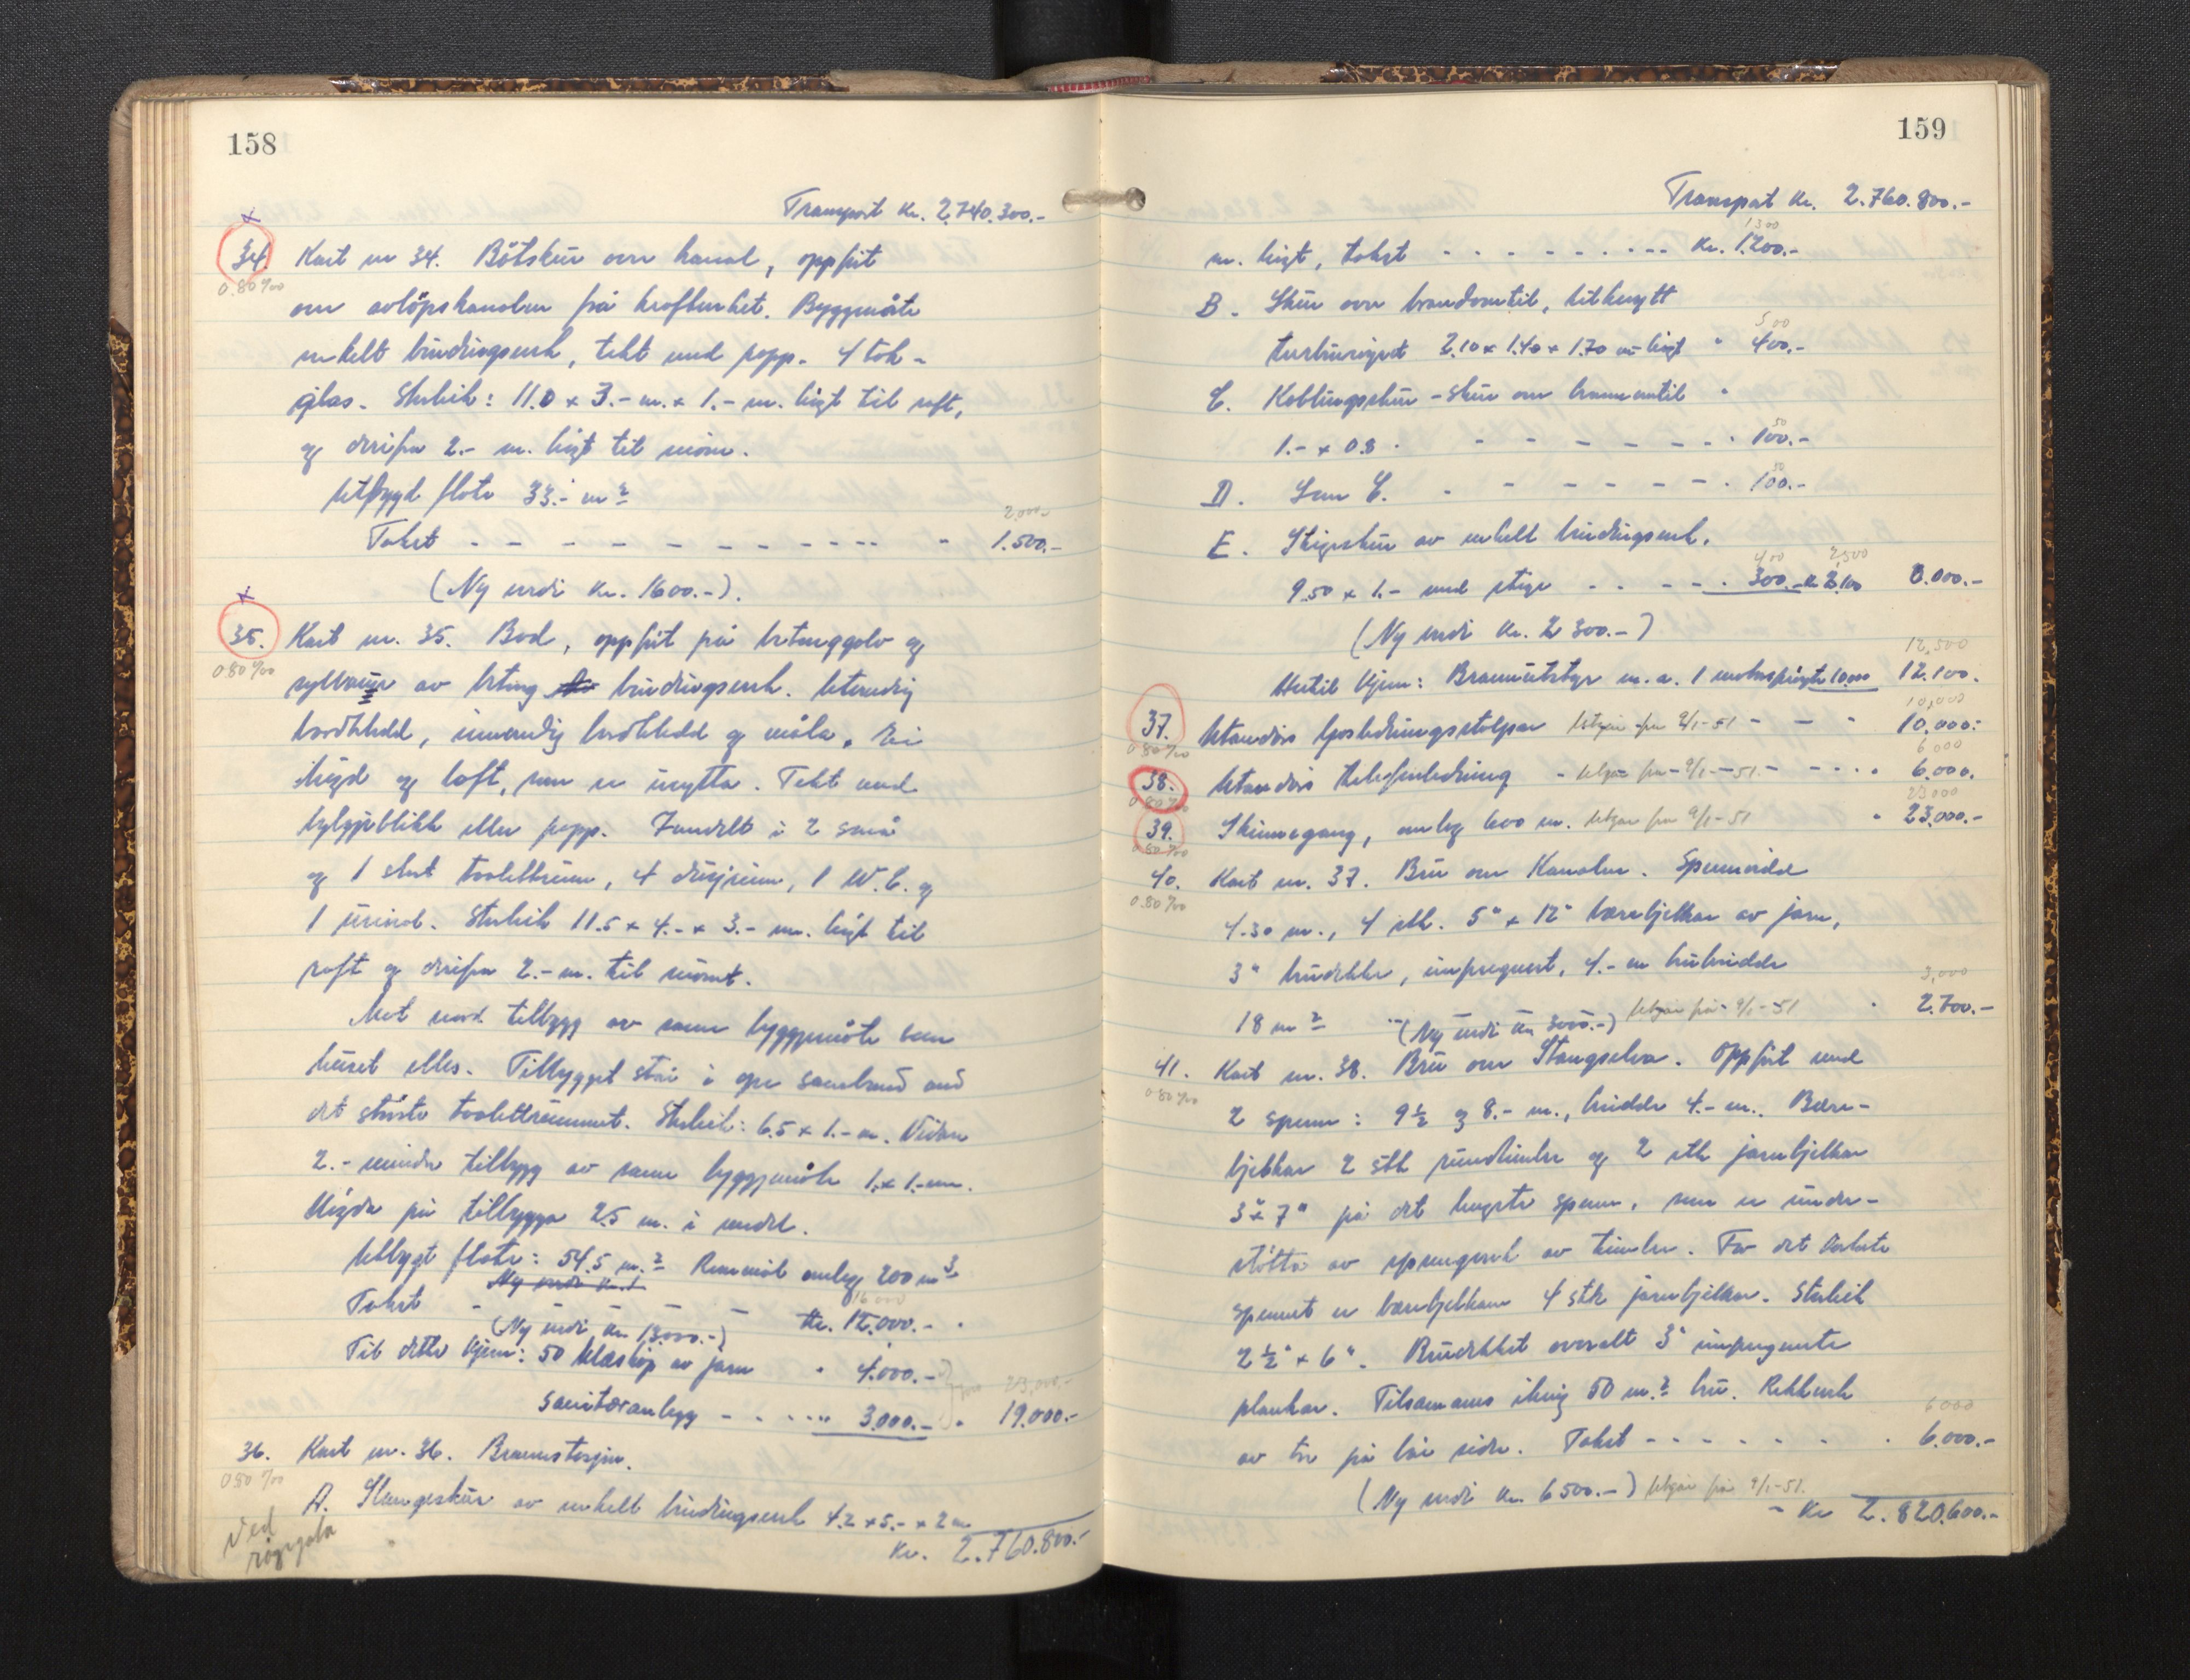 158
Transport Kr. 2.740.300.-
34. Kart nr 34. Båtskur over kanal, oppført
0.80 ‰
over avløpskanalen frå kraftverket. Byggmåte
enkelt bindingsverk, tekt med papp. 4 tak-
glas. Storleik: 11.0 x 3.- m. x 1.- m. høgt til raft,
og derifrå 2.- m. høgt til møne.
Utbygd flate 33.- m²
2.000.-
Takst - - - - - - - - - " 1.500.-
(Ny verdi kr. 1600.-).
35. Kart nr. 35. Bod, oppført på betonggolv og
0.80 ‰
syllmur av betong bindingsverk. Utvendig
bordkledd, innvendig bordkledd og måla. Ei
høgd og loft, som er unytta. Tekt med
bylgjeblikk eller papp. Inndelt i 2 små
og 1 stort toalettrum, 4 dusjrum, 1 W.C. og
1 urinal. Storleik 11.5 x 4.- x 3.- m. høgt til
raft og derifrå 2.- m. til mønet.
Mot nord tilbygg av same byggjemåte som
huset elles. Tilbygget står i open samband med
det største toalettrummet. Storleik: 6.5 x 1.- m. Vidare
2.- mindre tilbygg av same byggjemåte 1.x 1.- m.
Høgda på tilbygga 2.5 m. i medel.
Utbygt flate: 54.5 m.² Rommål omlag 200 m³
Ny verdi kr. 1
16000
Takst - - - - kr. 12.000.-
(Ny verdi kr. 13.000.-)
Til dette kjem: 50 klesskåp av jarn " 4.000.-
23,000.-
sanitæranlegg - - - - " 3.000.- " 19.000.-
36. Kart nr. 36. Brannstasjon.
0.80 ‰
A. Slangeskur av enkelt bindingsverk 4.2 x 5.- x 2 m
Ved
Kr. 2.760.800.-
159
Transport Kr. 2.760.800.-
1300
m. høgt, takst - - - - - - - - - Kr. 1.200.-
B. Skur over brandventil, tilknytt
500
turbinrøret 2.10 x 1.40 x 1.70 m høgt " 400.-
C. Koblingsskur - skur over brannventil "
50
1.- x 0.8 - - - - - - - 100.-
50
D. Som C. - - - - - - - 100.-
E. Stigeskur av enkelt bindingsverk.
400 2,500
9.50 x 1.- med stige - - - - - 300.- kr 2.100 2.000.-
(Ny verdi kr. 2300.-)
12,500
Hertil kjem: Brannutstyr m.a. 1 motorsprøyte 10.000 12.100.
10,000
37. Utandørs ljosledningsstolpar Utgår frå 9/1-51 - - " 10.000.-
0.80 ‰
6.000
38. Utandørs telefonledning - utgår frå 9/1-51 - - - - " 6.000.
0.80 ‰
23000
39. Skinnegang, omlag 600 m. utgår frå 9/1-51 " 23.000.-
0.80 ‰
40. Kart nr. 37. Bru over Kanalen. Spennvidd
0.80 ‰
4.30 m., 4 stk. 5" x 12" bærebjelkar av jarn,
3" brudekke, impregnert, 4.- m brubreidde
3,000
18 m² (Ny verdi kr 3000.-) utgår frå 9/1-51 " 2.700.-
41. Kart nr. 38. Bru over Stangselva. Oppført med
0.80 ‰
2 spenn: 9½ og 8.- m., breidde 4.- m. Bære-
bjelkar 2 stk rundtimbr og 2 stk jarnbjelkar
3" x 7" på det lengste spenn, som er under-
støtta av sprengverk av timber. For det korteste
spennet er bærebjelkane 4 stk jarnbjelkar. Storleik
2½" x 6". Brudekket overalt 3" impregnerte
plankar. Tilsamans ikring 50 m.² bru. Rekkverk
6000
av tre på båe sider. Takst - - - - - - " 6.000.-
(Ny verdi kr. 6500.-) utgår frå 9/1-51.
- Kr 2.820.600.-